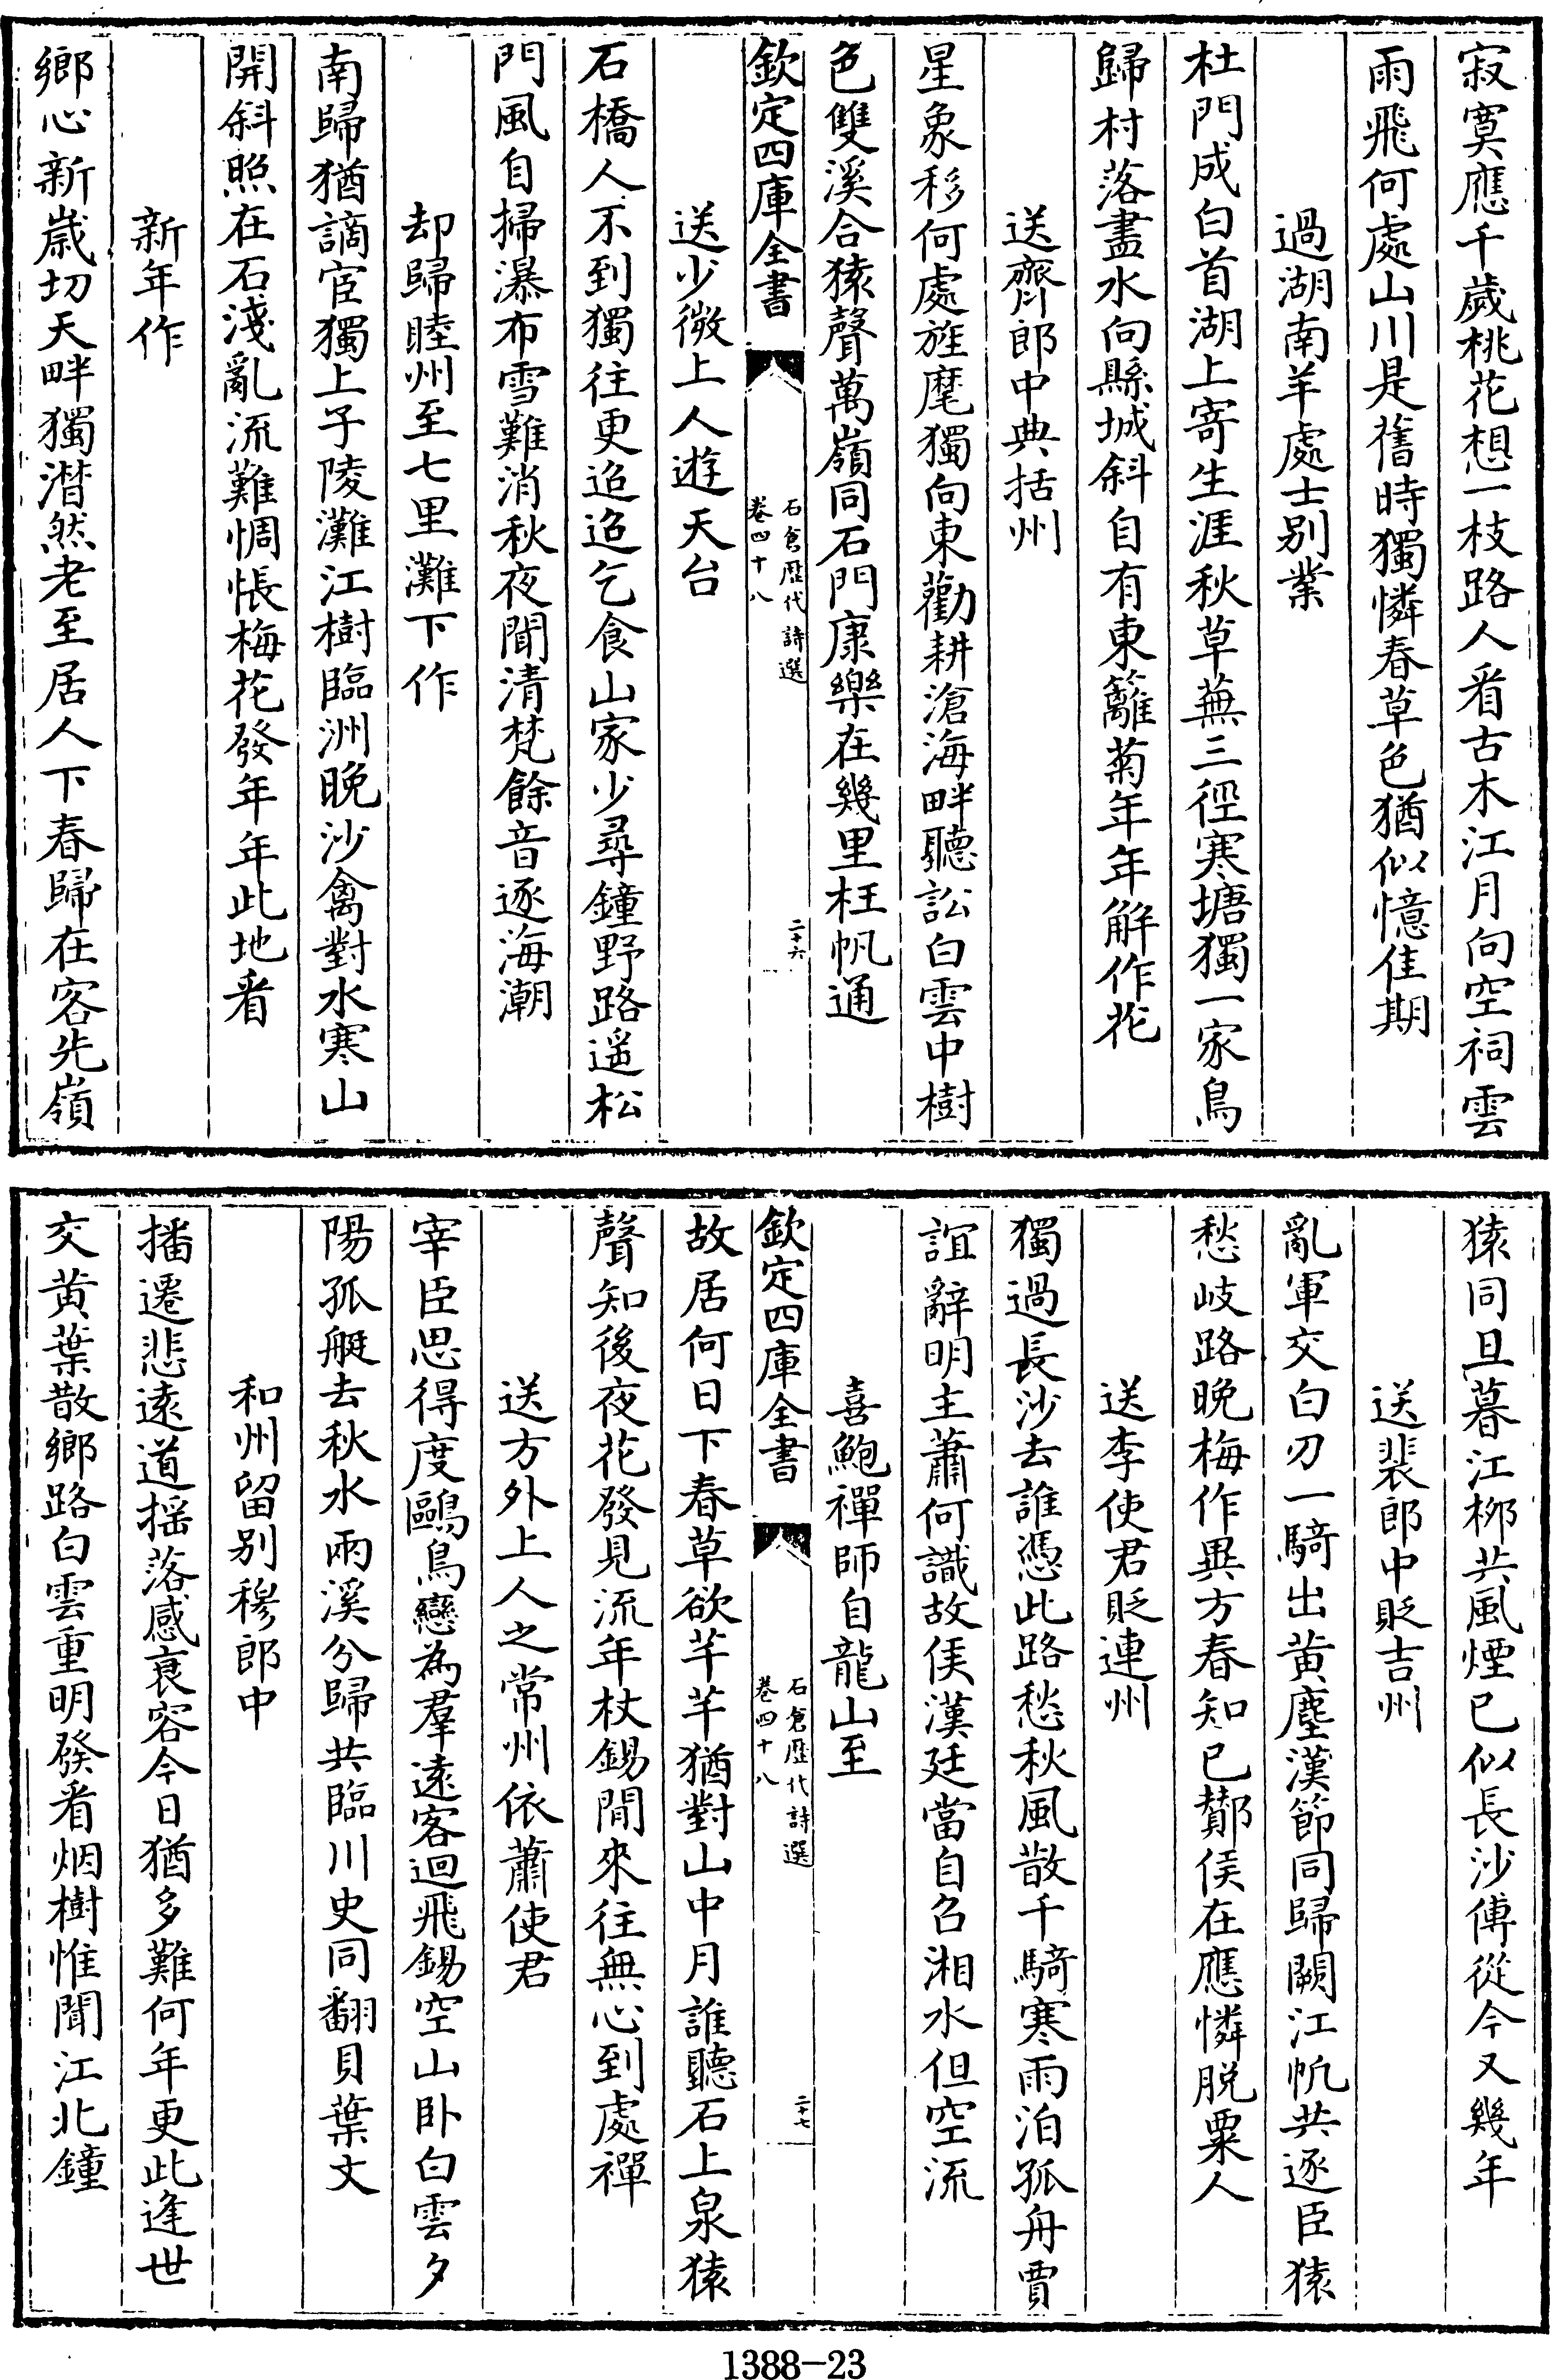 寂寞應千歲桃花想一枝路人看古木江月向空祠雲
雨飛何處山川是舊時獨憐春草色猶似憶佳期
過湖南羊處士别業
杜門成白首湖上寄生涯秋草蕪三徑寒塘獨一家鳥
歸村落盡水向縣城斜自有東籬菊年年解作花
送齊郎中典括州
星象移何處旌麾獨向東勸耕滄海畔聽訟白雲中樹
色雙溪合猿聲萬嶺同石門康樂在幾里枉帆通
欽定四庫全書
石倉歴代詩選
卷四十八
二十六
送少微上人遊天台
石橋人不到獨往更迢迢乞食山家少尋鐘野路遥松
門風自掃瀑布雪難消秋夜聞清梵餘音逐海潮
却歸睦州至七里灘下作
南歸猶謫宦獨上子陵灘江樹臨洲晚沙禽對水寒山
開斜照在石淺亂流難惆悵梅花發年年此地看
新年作
鄉心新歲切天畔獨潸然老至居人下春歸在客先嶺
猿同旦暮江栁共風煙已似長沙傅從今又幾年
送裴郎中貶吉州
亂軍交白刃一騎出黄塵漢節同歸闕江帆共逐臣猿
愁岐路晚梅作異方春知已酇侯在應憐脱粟人
送李使君貶連州
獨過長沙去誰憑此路愁秋風散千騎寒雨泊孤舟賈
誼辭明主蕭何識故侯漢廷當自召湘水但空流
喜鮑禪師自龍山至
欽定四庫全書
石倉歴代詩選
卷四十八
二十七
故居何日下春草欲芊芊猶對山中月誰聽石上泉猿
聲知後夜花發見流年杖錫閒來往無心到處禪
送方外上人之常州依蕭使君
宰臣思得度鷗鳥戀為羣遠客迴飛錫空山卧白雲夕
陽孤艇去秋水兩溪分歸共臨川史同翻貝葉文
和州留别穆郎中
播遷悲遠道摇落感衰容今日猶多難何年更此逢世
交黄葉散鄉路白雲重明發看烟樹惟聞江北鐘
1388-23